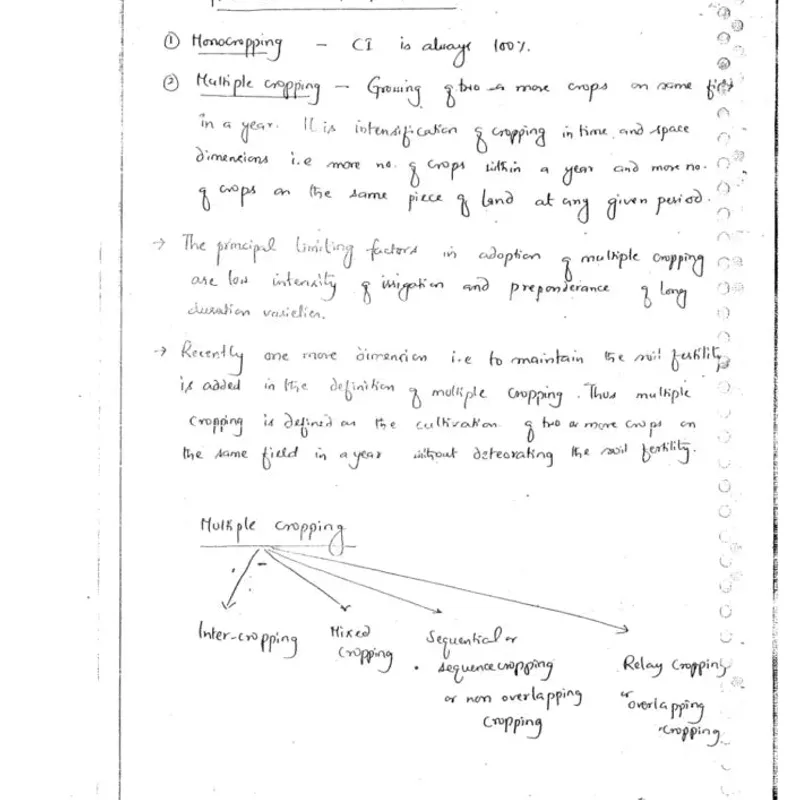 ① Monocropping – CI is always 100%.
② Multiple cropping – Growing of two or more crops on same field
in a year. It is intensification of cropping in time and space
dimensions i.e more no. of crops within a year and more no.
of crops on the same piece of land at any given period.
→ The principal limiting factors in adoption of multiple cropping
are low intensity of irrigation and preponderance of long
duration varieties.
→ Recently one more dimension i.e to maintain the soil fertility
is added in the definition of multiple cropping. Thus multiple
cropping is defined as the cultivation of two or more crops on
the same field in a year without deteorating the soil fertility.
Multiple Cropping
Inter-cropping
Mixed
Cropping
Sequential or
sequence cropping
or non overlapping
cropping
Relay Cropping
or overlapping
cropping